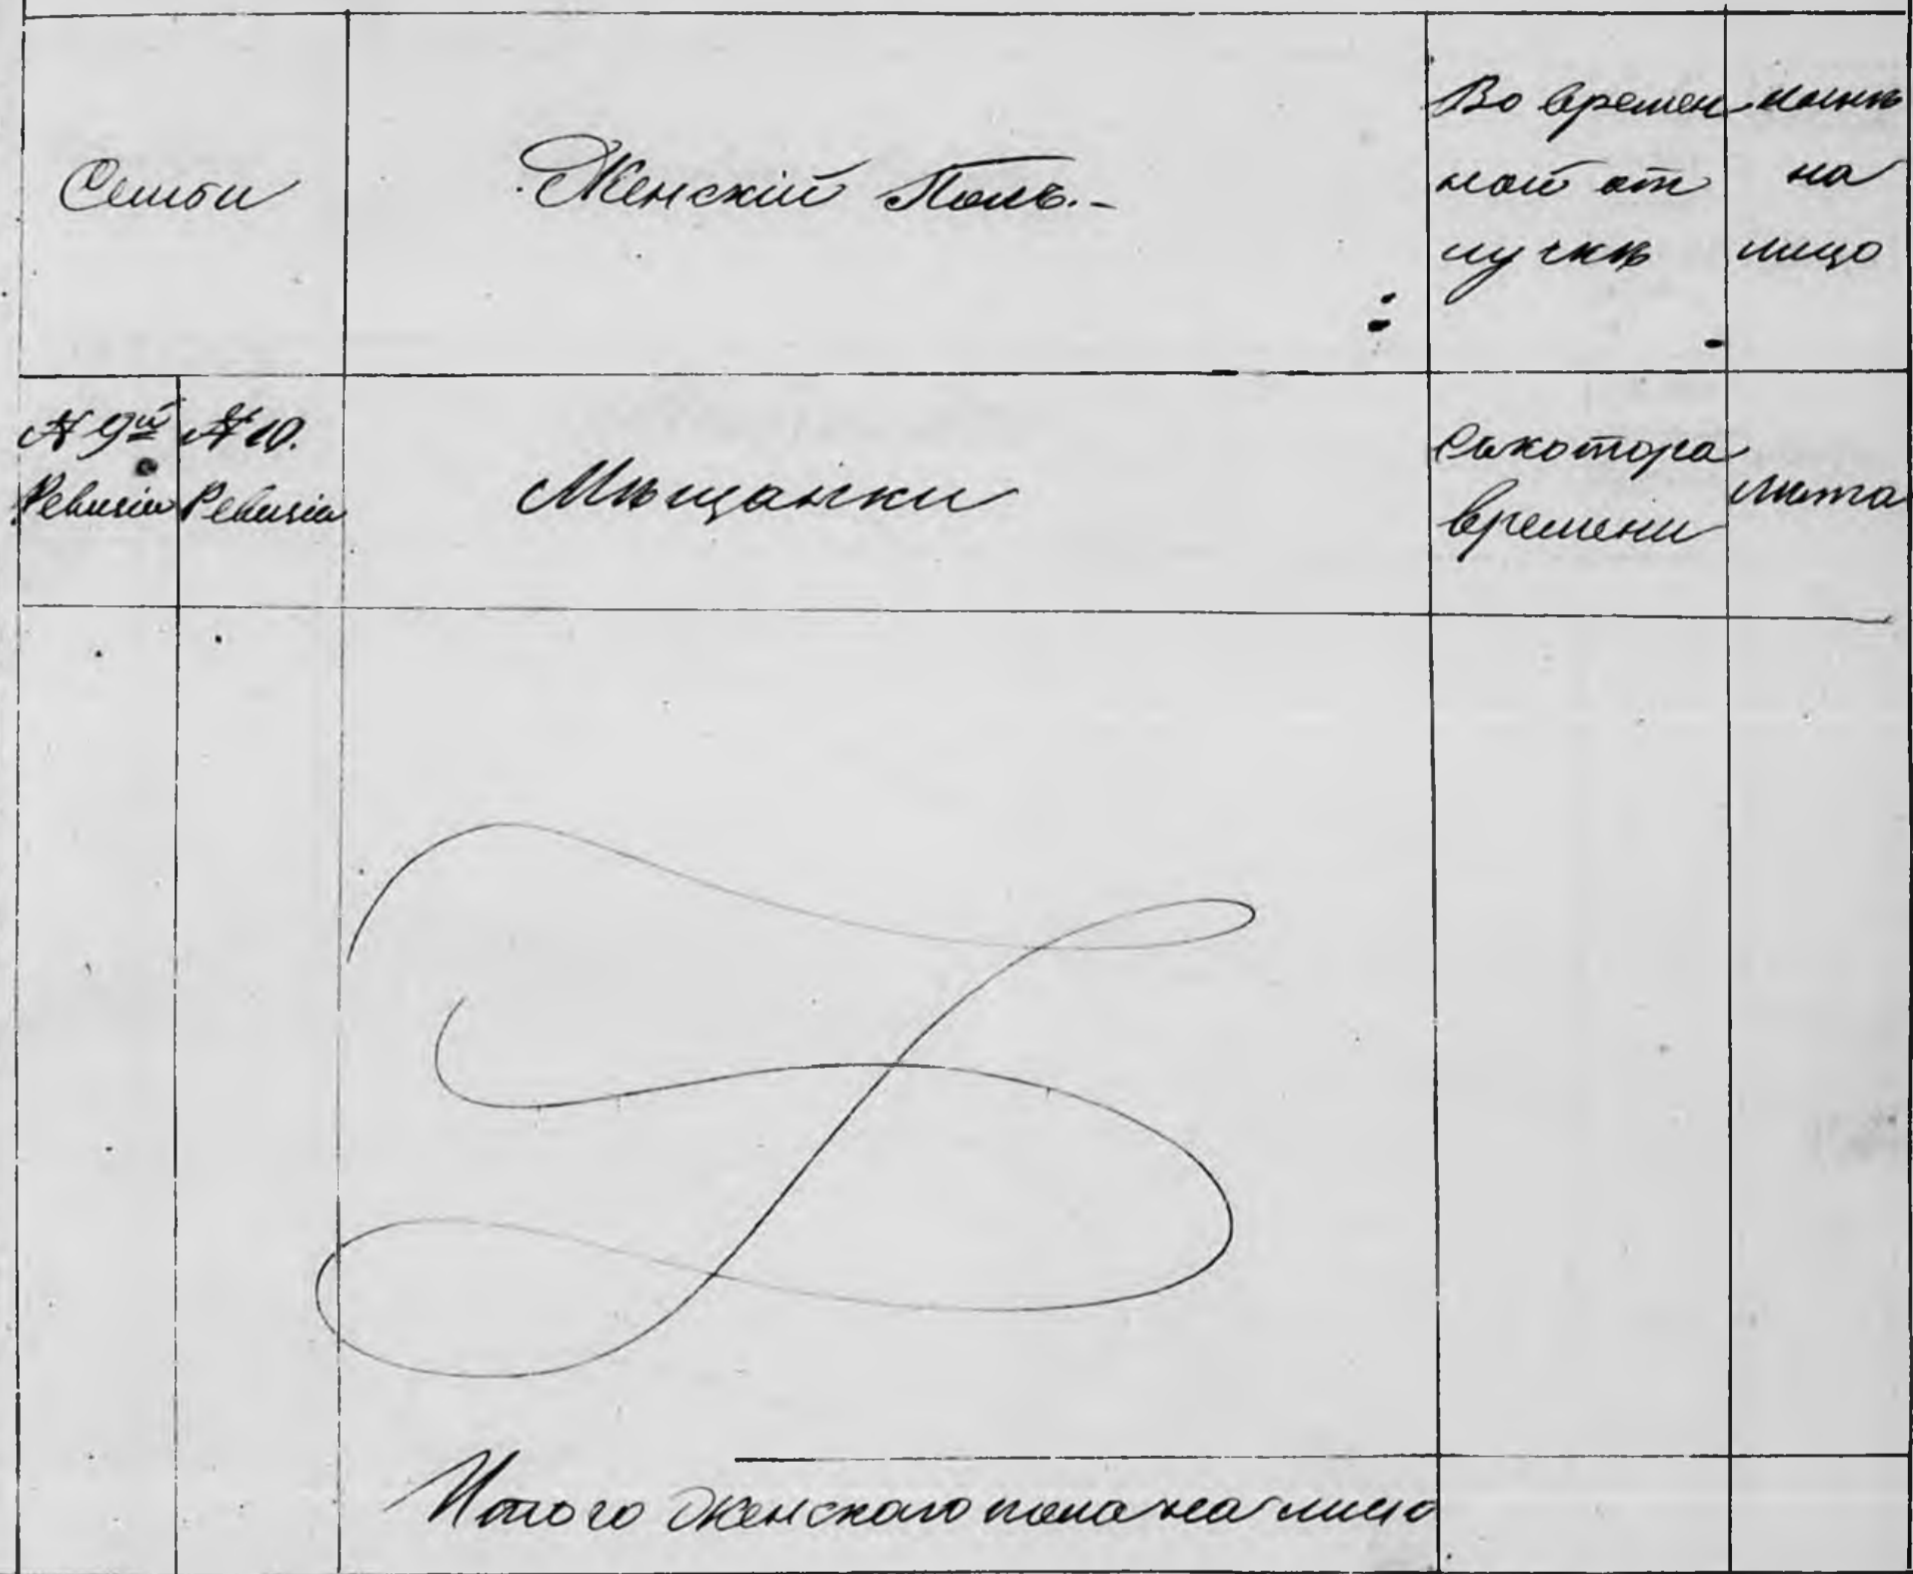 Семьи
Женскій Полъ.-
Во времен
ной от
лучкѣ
нынѣ
на
лицо
№ 9й
Ревизіи
№ 10.
Ревизіи
Мѣщанки
Съкотора
времени
Лѣта
Итого женскаго пола на лицо